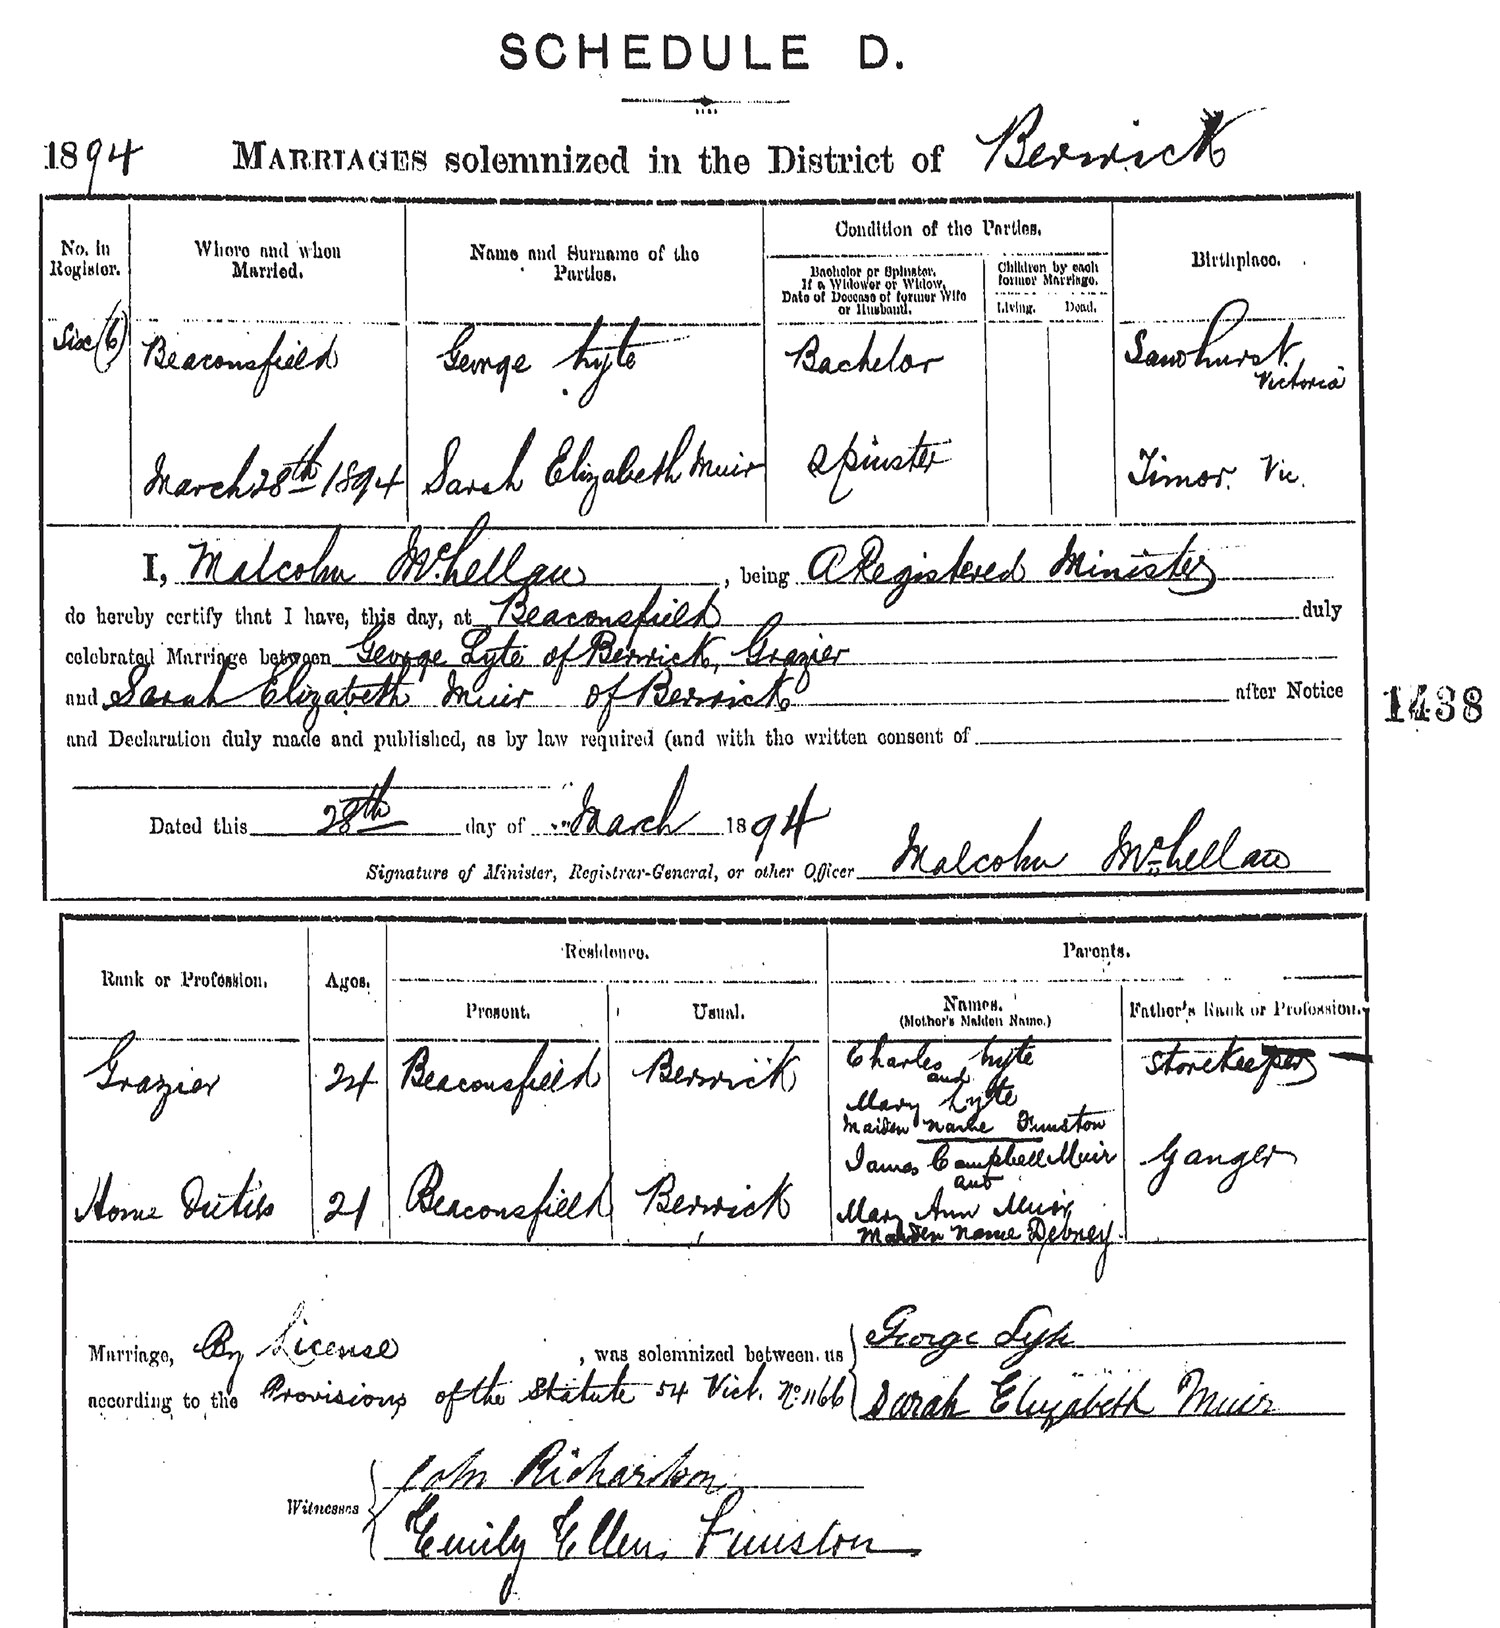 SCHEDULE D.
1894 MARRIAGES solemnized in the District of Berwick
No. in Register.
Where and when Married.
Name and Surname of the Parties.
Condition of the Parties.
Bachelor or Spinster. If a Widower or Widow, Date of Decease of former Wife or Husband.
Children by each former Marriage.
Living. Dead.
Birthplace.
Six (6) Beaconsfield George Lyte Bachelor Sandhurst, Victoria
March 28th 1894 Sarah Elizabeth Muir Spinster Timor. Vic.
I, Malcolm McLellan, being A Registered Minister
do hereby certify that I have, this day, at Beaconsfield duly
celebrated Marriage between George Lyte of Berwick, Grazier
and Sarah Elizabeth Muir of Berwick after Notice
1438
and Declaration duly made and published, as by law required (and with the written consent of
Dated this 28th day of March 1894
Signature of Minister, Registrar-General, or other Officer Malcolm McLellan
Rank or Profession.
Ages.
Residence.
Present. Usual.
Parents.
Names. (Mother's Maiden Name.)
Father's Rank or Profession.
Grazier 24 Beaconsfield Berwick
Charles Lyte
and
Mary Lyte
Maiden Name Funston
Storekeeper
Home Duties 21 Beaconsfield Berwick
James Campbell Muir
and
Mary Ann Muir
Maiden Name Debney
Ganger
Marriage, By License, was solemnized between us George Lyte
according to the Provisions of the Statute 54 Vict. No 1166 Sarah Elizabeth Muir
Witnesses John Richardson
Emily Ellen Funston